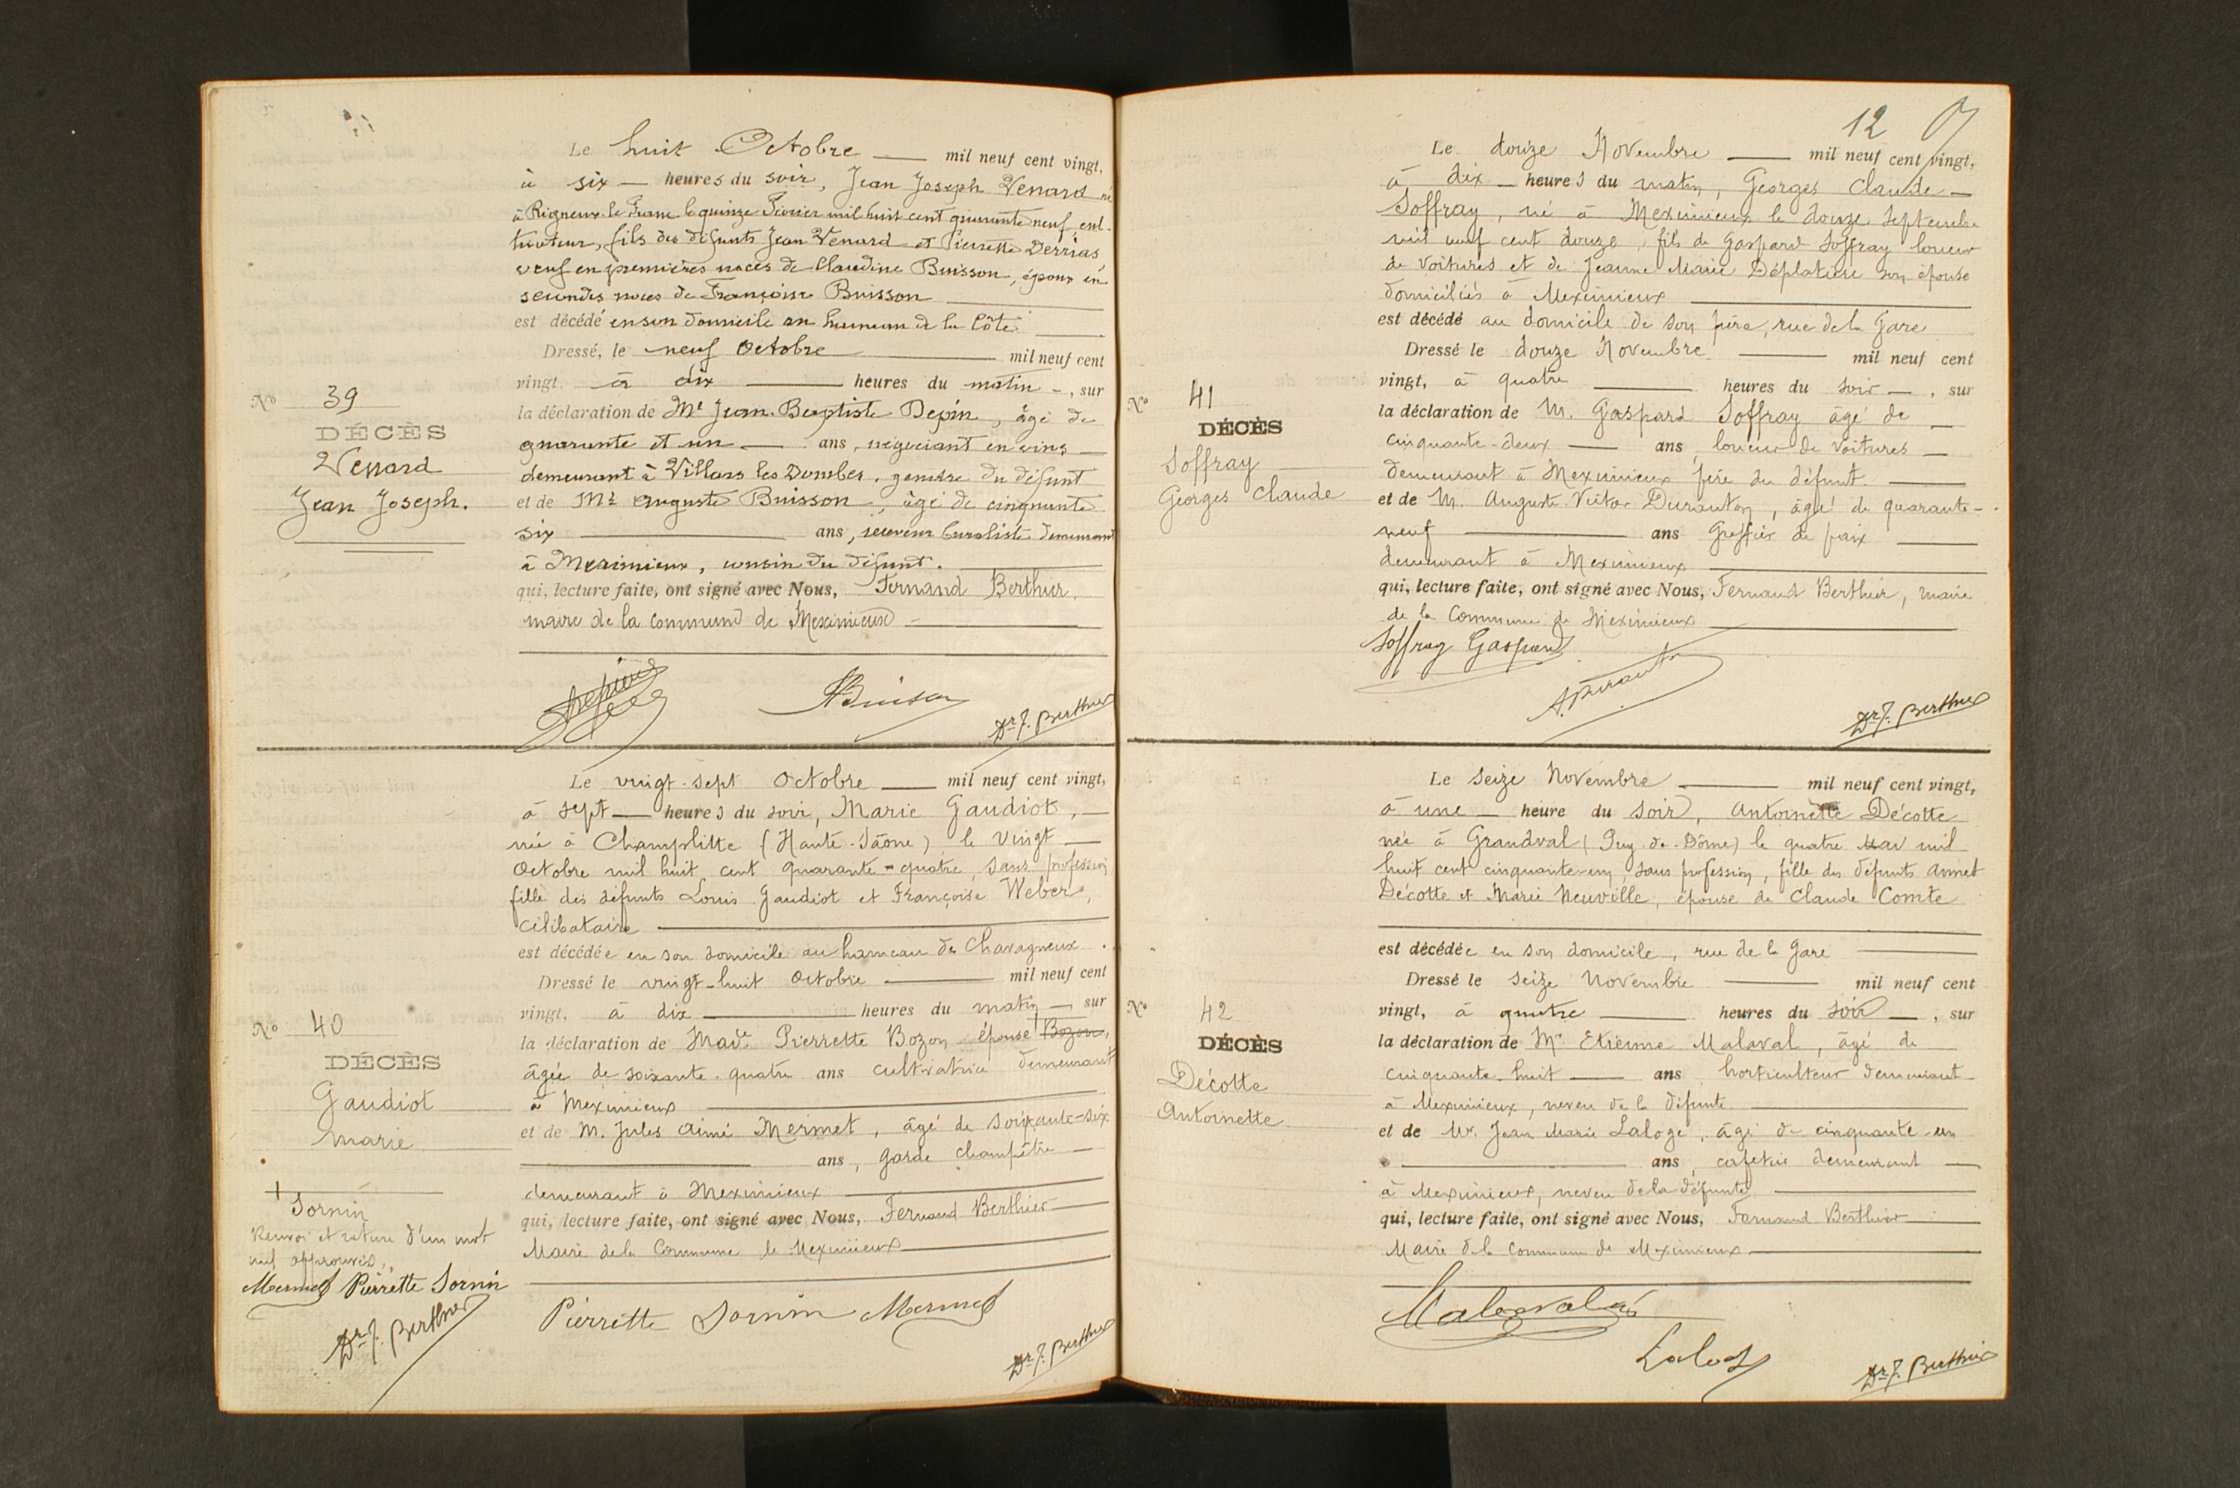 Le huit Octobre mil neuf cent vingt,
à six heures du soir, Jean Joseph Venard né
à Rigneux le Franc le quinze Février mil huit cent quarante neuf, cul-
tivateur, fils des défunts Jean Venard et Pierrette Derrias
veuf en premières noces de Claudine Buisson, époux en
secondes noces de Françoise Buisson
est décédé en son domicile au hameau de la Côte
Dressé, le neuf Octobre mil neuf cent
vingt à dix heures du matin, sur
la déclaration de Mr Jean-Baptiste Depin, âgé de
quarante et un ans, négociant en vins
demeurant à Villars les Dombes, gendre du défunt
et de Mr Auguste Buisson, âgé de cinquante
six ans, receveur buraliste demeurant
à Meximieux, cousin du défunt.
qui, lecture faite, ont signé avec Nous, Fernand Berthier,
maire de la commune de Meximieux
No 39
DÉCÈS
Venard
Jean Joseph.
Depin
ABuisson
Dr F. Berthier
Le vingt-sept Octobre mil neuf cent vingt,
à sept heures du soir, Marie Gaudiot,
née à Champlitte (Haute-Saône) le vingt
Octobre mil huit cent quarante-quatre, sans profession
fille des défunts Louis Gaudiot et Françoise Weber,
célibataire
est décédée en son domicile au hameau de Chavagneux.
Dressé le vingt-huit Octobre mil neuf cent
vingt, à dix heures du matin, sur
la déclaration de Made Pierrette Bozon épouse + Bozon,
âgée de soixante-quatre ans cultivatrice demeurant
à Meximieux
et de M. Jules Aimé Mermet, âgé de soixante-six
ans, garde champêtre
demeurant à Meximieux
qui, lecture faite, ont signé avec Nous, Fernand Berthier
Maire de la Commune de Meximieux
No 40
DÉCÈS
Gaudiot
Marie
+
Sornin
Renvoi et rature d'un mot
nul approuvés,
Mermet Pierrette Sornin
Dr F. Berthier
Pierrette Sornin Mermet
Dr F. Berthier
12
Le douze Novembre mil neuf cent vingt,
à dix heures du matin, Georges Claude
Soffray, né à Meximieux le douze Septembre
mil neuf cent douze, fils de Gaspard Soffray loueur
de voitures et de Jeanne Marie Déplatière son épouse
domiciliés à Meximieux
est décédé au domicile de son père, rue de la Gare
Dressé le douze Novembre mil neuf cent
vingt, à quatre heures du soir, sur
la déclaration de M. Gaspard Soffray âgé de
cinquante-deux ans, loueur de voitures
demeurant à Meximieux père du défunt
et de M. Auguste Victor Duranton, âgé de quarante-
neuf ans Greffier de paix
demeurant à Meximieux
qui, lecture faite, ont signé avec Nous, Fernand Berthier, maire
de la Commune de Meximieux
No 41
DÉCÈS
Soffray
Georges Claude
Soffray Gaspard
A. Duranton
Dr F. Berthier
Le seize Novembre mil neuf cent vingt,
à une heure du soir, Antoinette Décotte
née à Grandval (Puy-de-Dôme) le quatre Mai mil
huit cent cinquante-un, sans profession, fille des défunts Annet
Décotte et Marie Neuville, épouse de Claude Comte
est décédée en son domicile, rue de la Gare
Dressé le seize Novembre mil neuf cent
vingt, à quatre heures du soir, sur
la déclaration de Mr Etienne Malaval, âgé de
cinquante-huit ans horticulteur demeurant
à Meximieux, neveu de la défunte
et de Mr Jean Marie Laloge, âgé de cinquante-un
ans, cafetier demeurant
à Meximieux, neveu de la défunte
qui, lecture faite, ont signé avec Nous, Fernand Berthier
Maire de la commune de Meximieux
No 42
DÉCÈS
Décotte
Antoinette
Malaval
Laloge
Dr F. Berthier